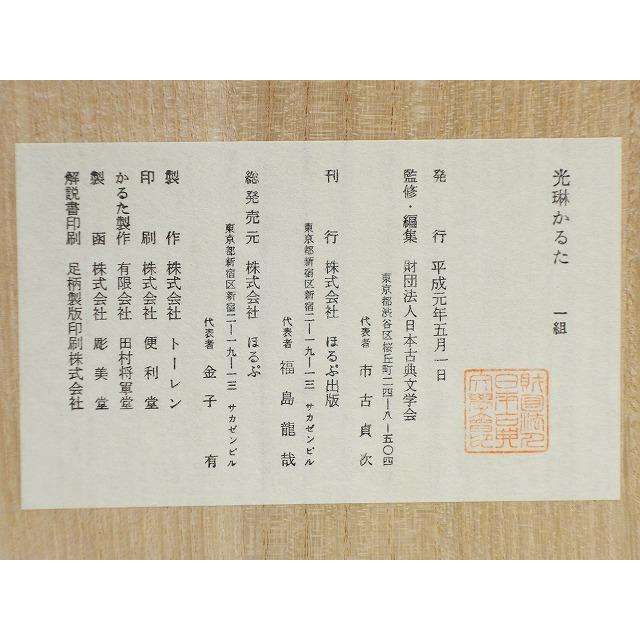 光琳かるた 一組
財団法人日本古典文学会印
発行 平成元年五月一日
監修・編集 財団法人日本古典文学会
東京都渋谷区桜丘町二四―八―五〇四
代表者 市古貞次
刊行 株式会社 ほるぷ出版
東京都新宿区新宿二―一九―一三 サカゼンビル
代表者 福島龍哉
総発売元 株式会社 ほるぷ
東京都新宿区新宿二―一九―一三 サカゼンビル
代表者 金子有
製作 株式会社 トーレン
印刷 株式会社 便利堂
かるた製作 有限会社 田村将軍堂
製函 株式会社 彫美堂
解説書印刷 足柄製版印刷株式会社